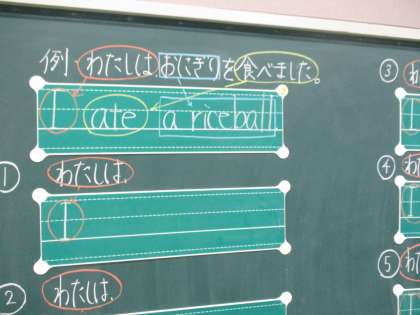 例 わたしは おにぎり を 食べました。
I ate a riceball
① わたしは
I
② わたしは
③
④
⑤